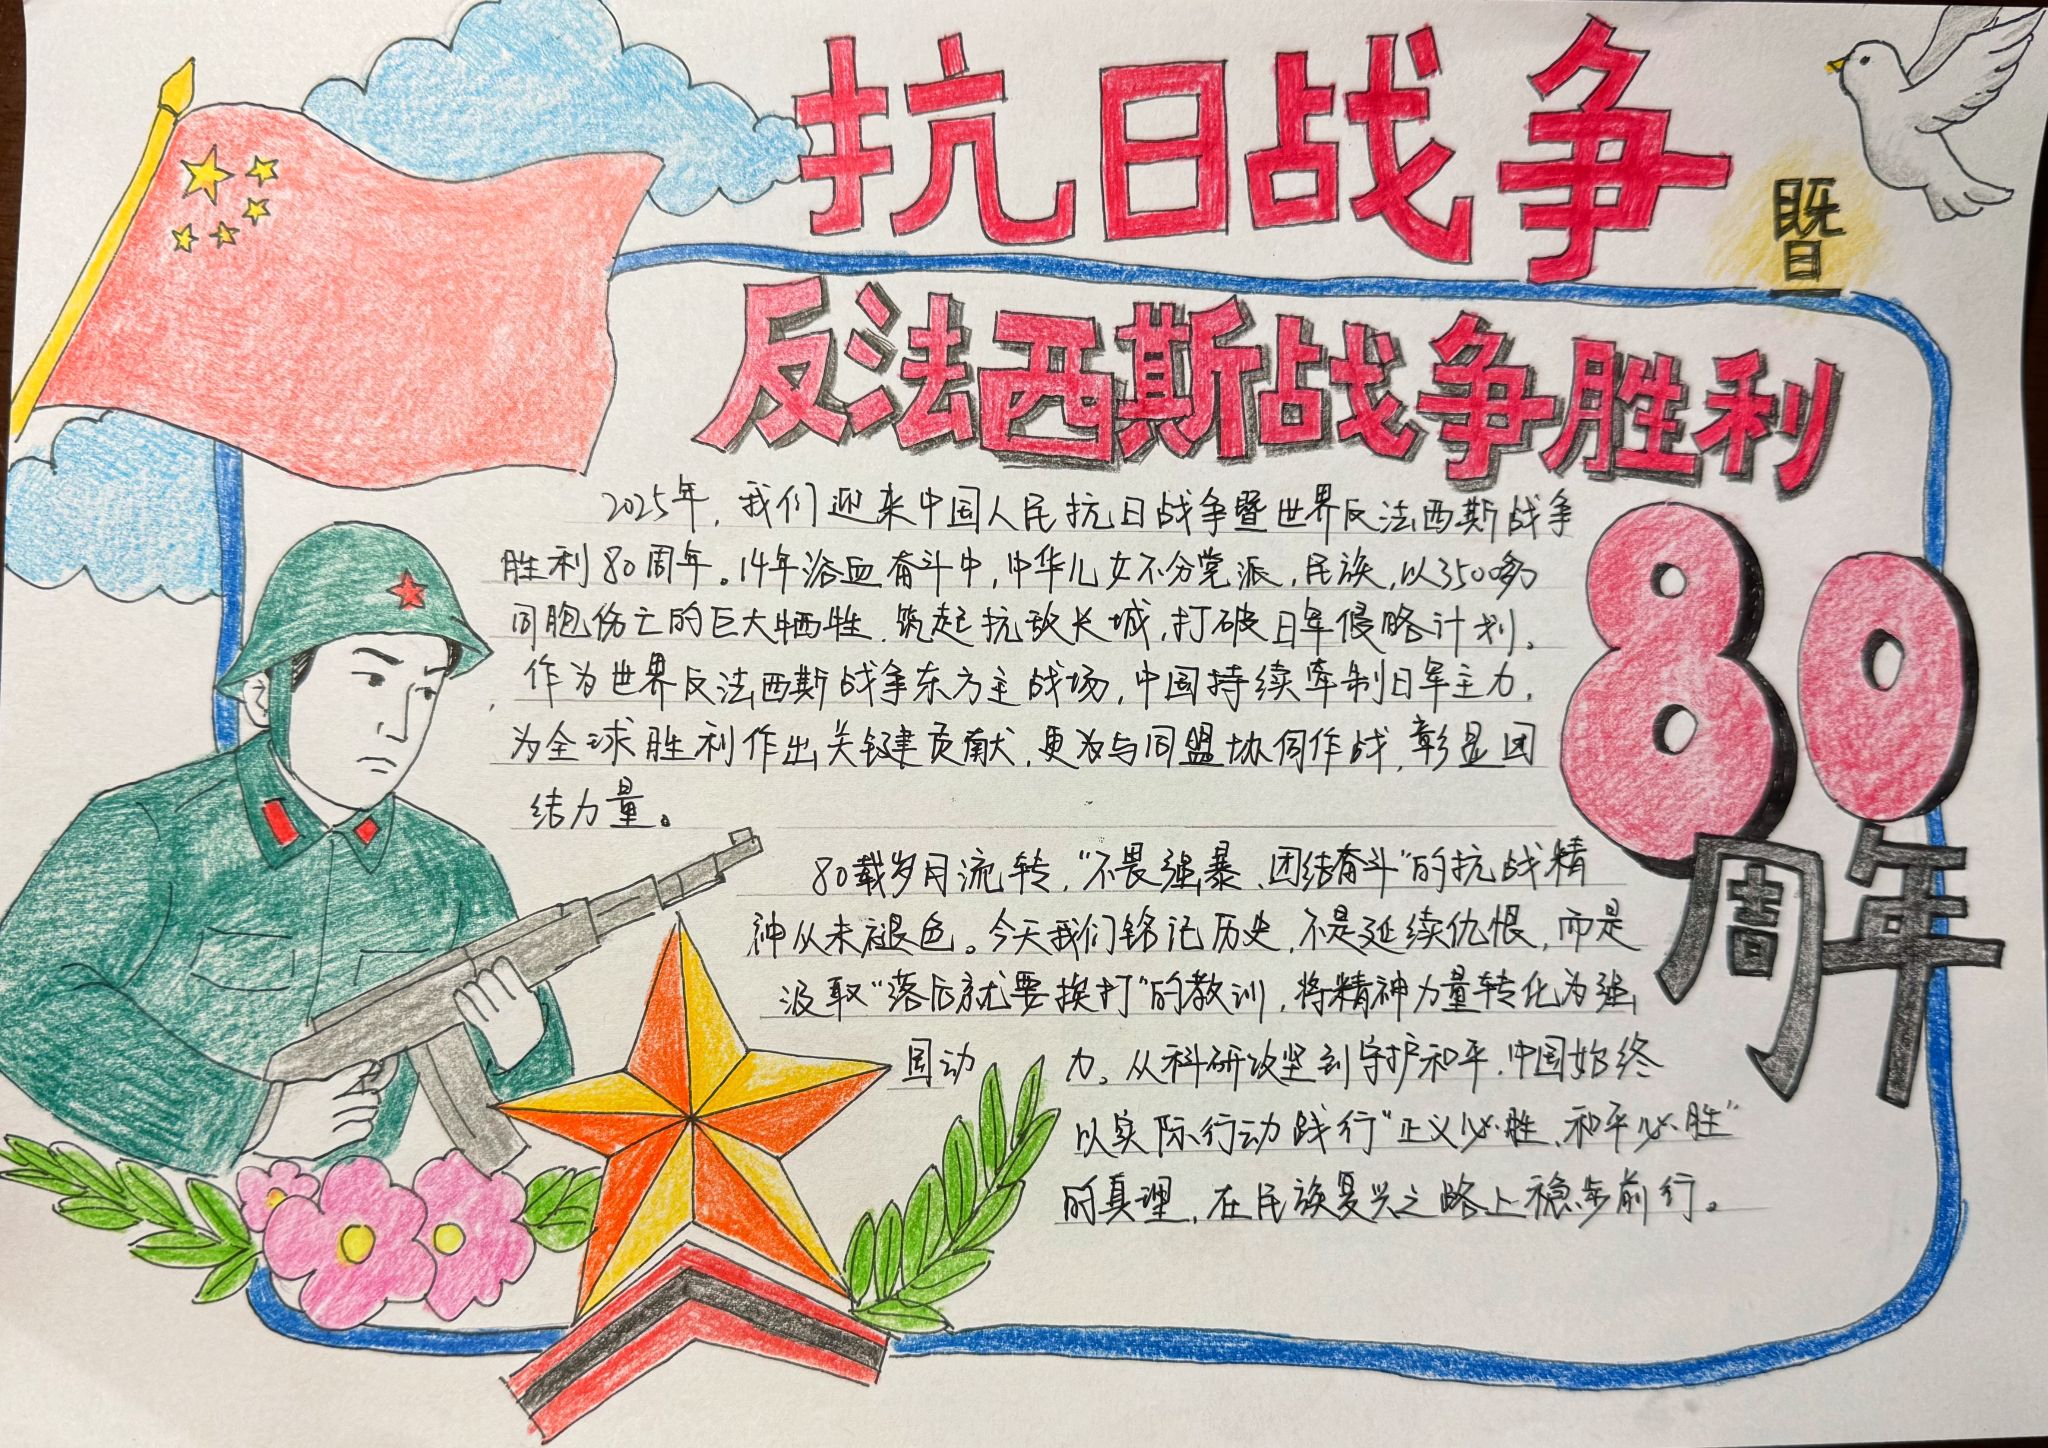 抗日战争
暨
反法西斯战争胜利
80
周年
2025年，我们迎来中国人民抗日战争暨世界反法西斯战争
胜利80周年。14年浴血奋斗中，中华儿女不分党派，民族，以3500多
同胞伤亡的巨大牺牲，筑起抗敌长城，打破日军侵略计划。
作为世界反法西斯战争东方主战场，中国持续牵制日军主力，
为全球胜利作出关键贡献，更为与同盟协同作战，彰显团
结力量。
80载岁月流转，“不畏强暴、团结奋斗”的抗战精
神从未褪色。今天我们铭记历史，不是延续仇恨，而是
汲取“落后就要挨打”的教训，将精神力量转化为强
国动力。从科研攻坚到守护和平，中国始终
以实际行动践行“正义必胜、和平必胜”
的真理，在民族复兴之路上稳步前行。